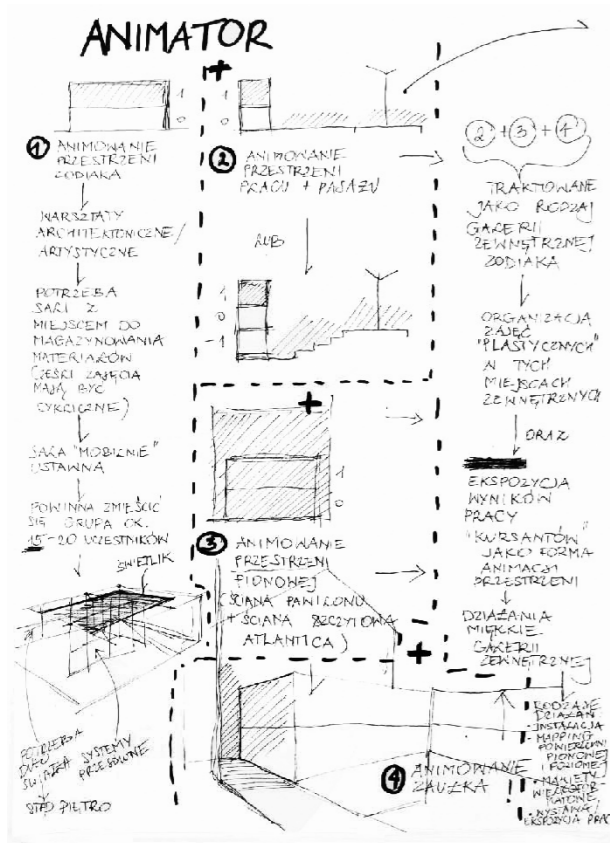 ANIMATOR
+
1
0
① ANIMOWANIE
PRZESTRZENI
ZODIAKA
WARSZTATY
ARCHITEKTONICZNE/
ARTYSTYCZNE
POTRZEBA
SALI Z
MIEJSCEM DO
MAGAZYNOWANIA
MATERIAŁÓW
(CZĘŚCI ZAJĘCIA
MAJĄ BYĆ
CYKLICZNE)
SALA "MOBILNIE"
USTAWNA
POWINNA ZMIEŚCIĆ
SIĘ GRUPA OK.
15-20 UCZESTNIKÓW
ŚWIETLIK
POTRZEBA
DUŻO
ŚWIATŁA
STĄD PIĘTRO
SYSTEMY
PRZESUWNE
1
0
② ANIMOWANIE
PRZESTRZENI
PLACU + PASAŻU
LUB
1
0
-1
+
1
0
③ ANIMOWANIE
PRZESTRZENI
PIONOWEJ
(ŚCIANA PAWILONU
+ ŚCIANA SZCZYTOWA
ATLANTICA)
+
④ ANIMOWANIE
ZAUŁKA
② + ③ + ④
TRAKTOWANE
JAKO RODZAJ
GALERII
ZEWNĘTRZNEJ
ZODIAKA
ORGANIZACJA
ZAJĘĆ
"PLASTYCZNYCH"
W TYCH
MIEJSCACH
ZEWNĘTRZNYCH
ORAZ
EKSPOZYCJA
WYNIKÓW
PRACY
"KURSANTÓW"
JAKO FORMA
ANIMACJI
PRZESTRZENI
DZIAŁANIA
MIĘKKIE
GALERII
ZEWNĘTRZNEJ
RODZAJE
DZIAŁAŃ
- INSTALACJA
- MAPPING
POWIERZCHNI
PIONOWEJ
I POZIOMEJ
- MAKIETY
WIELKOFOR-
MATOWE
- WYSTAWA/
EKSPOZYCJA PRAC